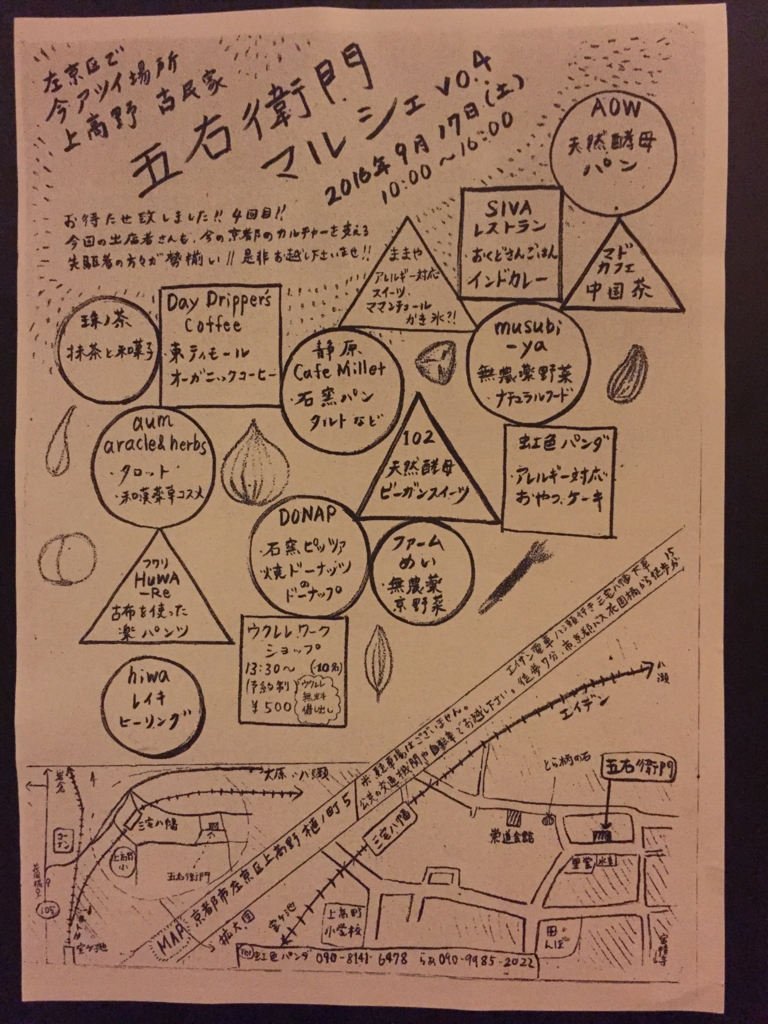 左京区で
今アツイ場所
上高野 古民家
五右衛門
マルシェ vo.4
2016年9月17日(土)
10:00～16:00
お待たせ致しました!! 4回目!!
今回の出店者さんも、今の京都のカルチャーを支える
先駆者の方々が勢揃い!! 是非お越し下さいませ!!
AOW
天然酵母
パン
SIVA
レストラン
・おくどさんごはん
インドカレー
マド
カフェ
中国茶
ままや
アレルギー対応
スイーツ
かき氷?!
珠ノ茶
抹茶と和菓子
Day Dripper's
Coffee
・東ティモール
オーガニックコーヒー
静原
Cafe Millet
・石窯パン
タルトなど
musubi
-ya
無農薬野菜
・ナチュラルフード
aum
aracle&herbs
・タロット
・和漢薬草コスメ
102
天然酵母
ビーガンスイーツ
虹色パンダ
・アレルギー対応
おやつ、ケーキ
DONAP
・石窯ピッツァ
焼ドーナッツ
の
ドーナップ
ファーム
めい
・無農薬
京野菜
フワリ
HUWA
-Re
古布を使った
楽パンツ
ウクレレワーク
ショップ
13:30～ (10名)
(予約制)
¥500
ウクレレ
無料
貸出し
hiwa
レイキ
ヒーリング
エイデン電車 八瀬行き 三宅八幡下車
徒歩7分、市、京都バス花園橋から徒歩15分
※駐車場はございません。
公共の交通機関や自転車でお越し下さい。
MAP 京都市左京区上高野 樋ノ町5
拡大図
八瀬
エイデン
三宅八幡
宝ヶ池
とら柄の石
五右衛門
栄道会館
上高野
小学校
田んぼ
大原・八瀬
三宅八幡
上高野小
五右衛門
宝ヶ池
虹色パンダ 090-8141-6478 090-9985-2022